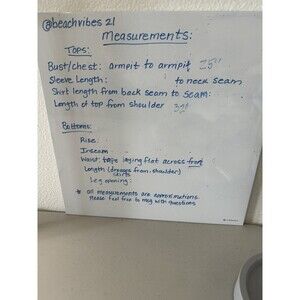 @beachvibes 21
Measurements:
Tops:
Bust/chest: armpit to armpit 25"
Sleeve Length: to neck seam
Shirt length from back seam to seam:
Length of top from shoulder
Bottoms:
Rise:
Inseam
Waist: tape laying flat across front
Length (dresses from shoulder)
skirts
Leg opening:
* all measurements are approximations
Please feel free to msg with questions